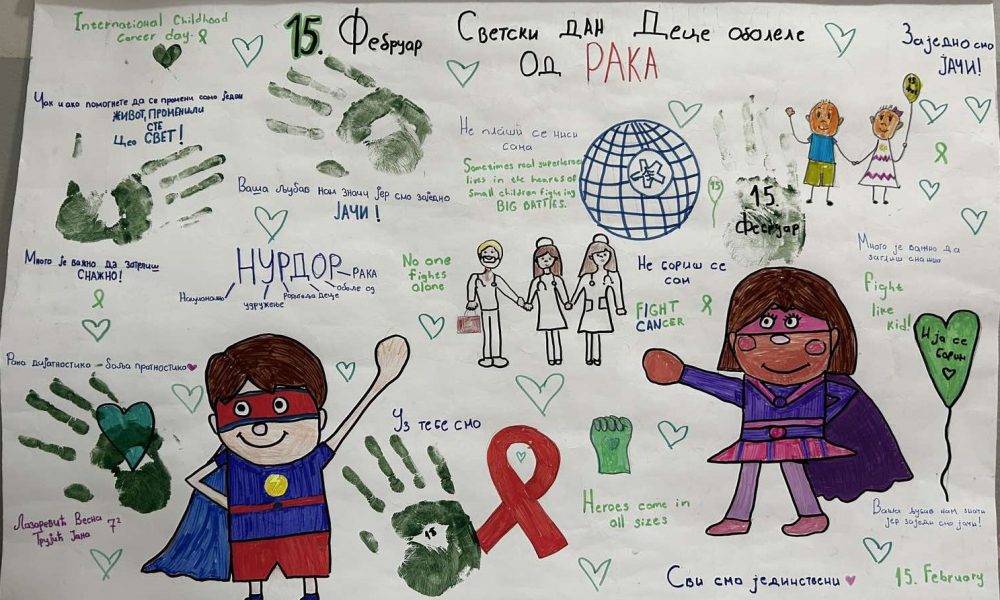 International Childhood
Cancer day.
15. Фебруар
Светски дан Деце оболеле
Од РАКА
Заједно смо
ЈАЧИ!
Чак и ако помогнете да се промени само један
ЖИВОТ, ПРОМЕНИЛИ
СТЕ
Цео СВЕТ!
Не плаши се ниси
сама
Sometimes real superheroes
lives in the hearts of
small children fighting
BIG BATTLES.
15
15.
Фебруар
15
Ваша љубав нам значи јер смо заједно
ЈАЧИ!
Много је важно да загрлиш
СНАЖНО!
НУРДОР
РАКА
оболе од
родитеља деце
удружење
Национално
No one
fights
alone
Не бориш се
сам
FIGHT
CANCER
Много је важно да
загрлиш снажно
Fight
like
kid!
И ја се
борим
Рана дијагностика - боља прогностика
Уз тебе смо
15
Heroes come in
all sizes
Лазаревић Весна 7²
Трујић Јана
Ваша љубав нам значи
јер заједно смо јачи!
Сви смо јединствени
15. February